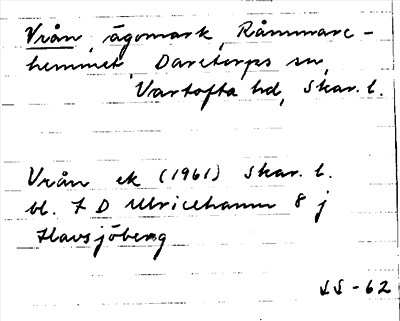 Vrån, ägomark, Råmmare-
hemmet, Daretorps sn,
Vartofta hd, Skar. l.
Vrån ek (1961) Skar. l.
bl. 7 D Ulricehamn 8 j
Havsjöberg
-62